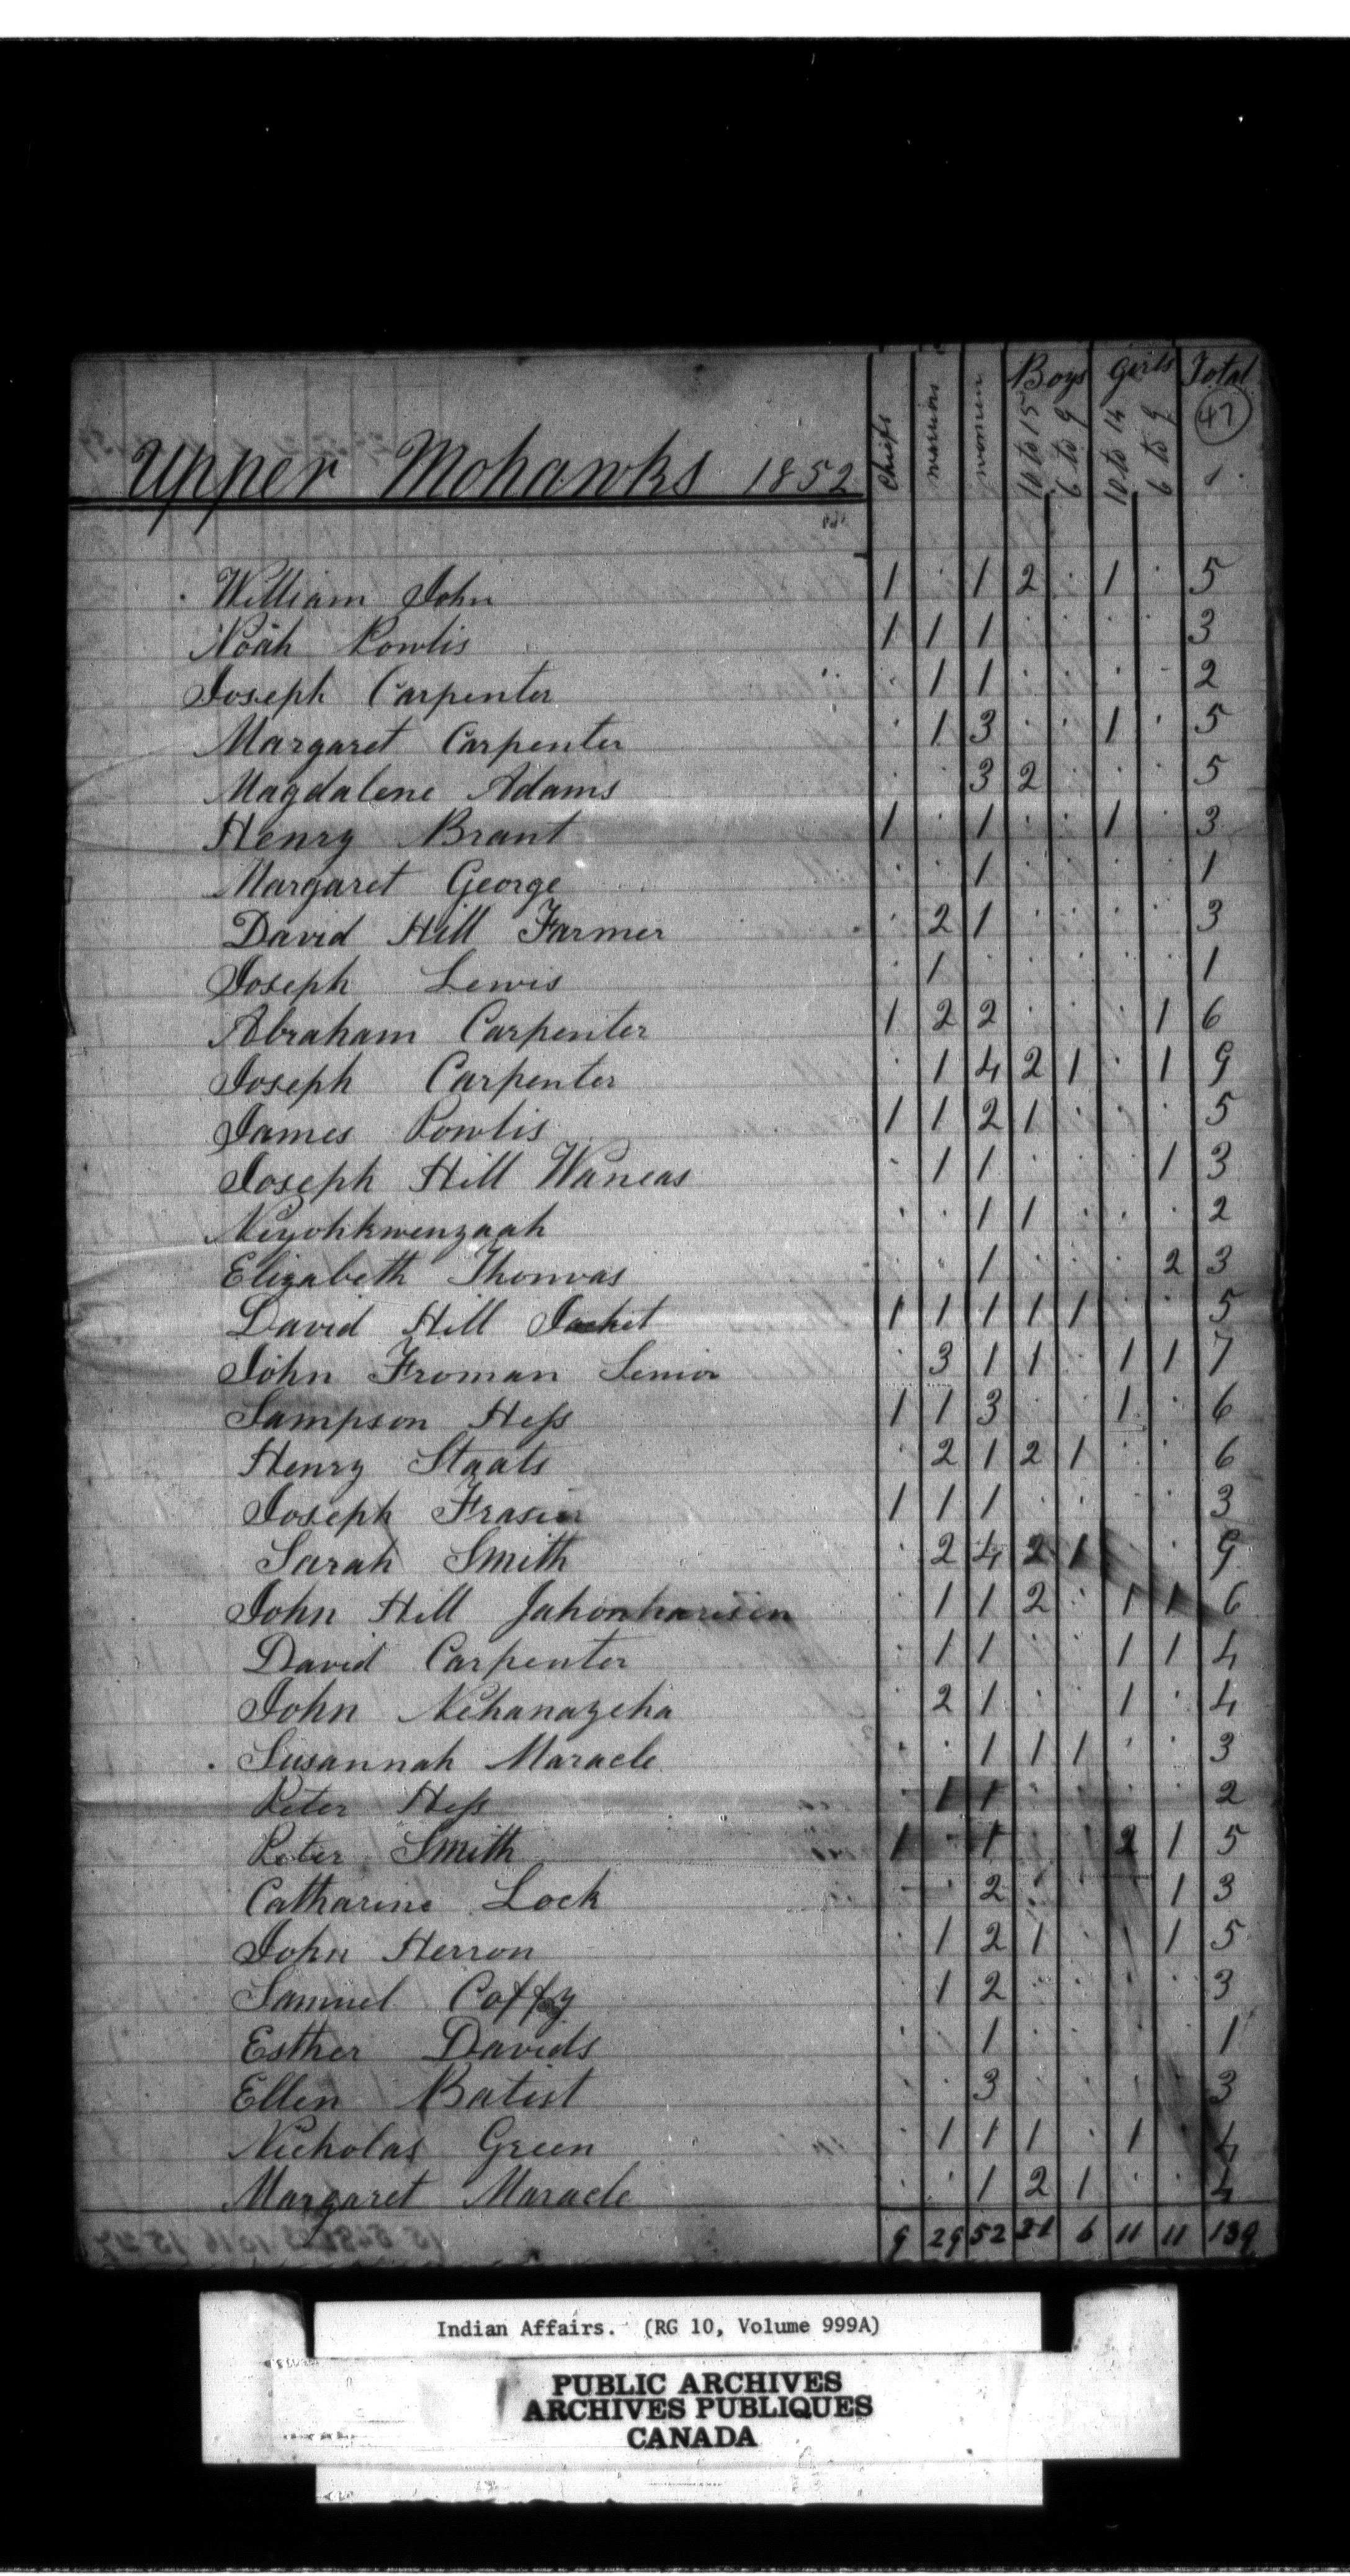 Boys Girls Total
Chiefs warriors women 10 to 15 6 to 9 10 to 14 6 to 9 47
Upper Mohawks 1852
William John 1 . 1 2 . 1 . 5
Noah Powlis 1 1 1 . . . . 3
Joseph Carpenter . 1 1 . . . . 2
Margaret Carpenter . 1 3 . . 1 . 5
Magdalene Adams . . 3 2 . . . 5
Henry Brant 1 . 1 . . 1 . 3
Margaret George . . 1 . . . . 1
David Hill Farmer . 2 1 . . . . 3
Joseph Lewis . 1 . . . . . 1
Abraham Carpenter 1 2 2 . . . 1 6
Joseph Carpenter . 1 4 2 1 . 1 9
James Powlis 1 1 2 1 . . . 5
Joseph Hill Waneas . 1 1 . . . 1 3
Neyohkwenzaah . . 1 1 . . . 2
Elizabeth Thomas . . 1 . . . 2 3
David Hill Jacket 1 1 1 1 1 . . 5
John Froman Senior . 3 1 1 . 1 1 7
Sampson Hess 1 1 3 . . 1 . 6
Henry Staats . 2 1 2 1 . . 6
Joseph Frasier 1 1 1 . . . . 3
Sarah Smith . 2 4 2 1 . . 9
John Hill . 1 1 2 . 1 1 6
David Carpenter . 1 1 . . 1 1 4
John Nehanazeha . 2 1 . . 1 . 4
Susannah Maracle . . 1 1 1 . . 3
Peter Hess . 1 1 . . . . 2
Peter Smith 1 . 1 . . 2 1 5
Catharine Lock . . 2 . . . 1 3
John Herron . 1 2 1 . . 1 5
Samuel Coffy . 1 2 . . . . 3
Esther Davids . . 1 . . . . 1
Ellen Batist . . 3 . . . . 3
Nicholas Green . 1 1 1 . 1 . 4
Margaret Maracle . . 1 2 1 . . 4
9 29 52 21 6 11 11 139
Indian Affairs. (RG 10, Volume 999A)
PUBLIC ARCHIVES
ARCHIVES PUBLIQUES
CANADA